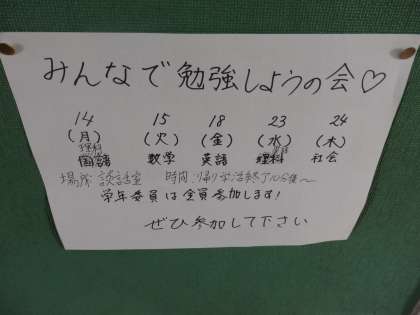 みんなで勉強しようの会♡
14 15 18 23 24
(月) (火) (金) (水) (木)
理科 国語 数学 英語 理科 国語 社会
場所:談話室 時間:帰り学活終了10分後〜
学年委員は全員参加します!
ぜひ参加して下さい